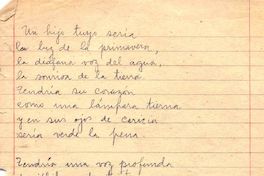 Un hijo tuyo sería
la luz de la primavera,
la diáfana voz del agua,
la sonrisa de la tierra.
Tendría su corazón
como una lámpara tierna
y en sus ojos de caricia
sería verde la pena.
Tendría una voz profunda